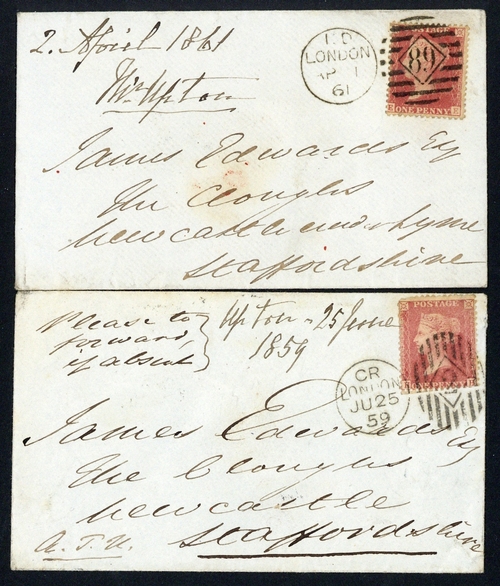 2. April 1861
Mr Upton
I.D
LONDON
AP 1
61
89
POSTAGE
ONE PENNY
James Edwards Esq
The Cloughs
Newcastle under Lyme
Staffordshire
Please to
forward,
if absent
Upton - 25 June
1859
CR
LONDON
JU 25
59
POSTAGE
ONE PENNY
James Edwards Esq
The Cloughs
Newcastle
Staffordshire